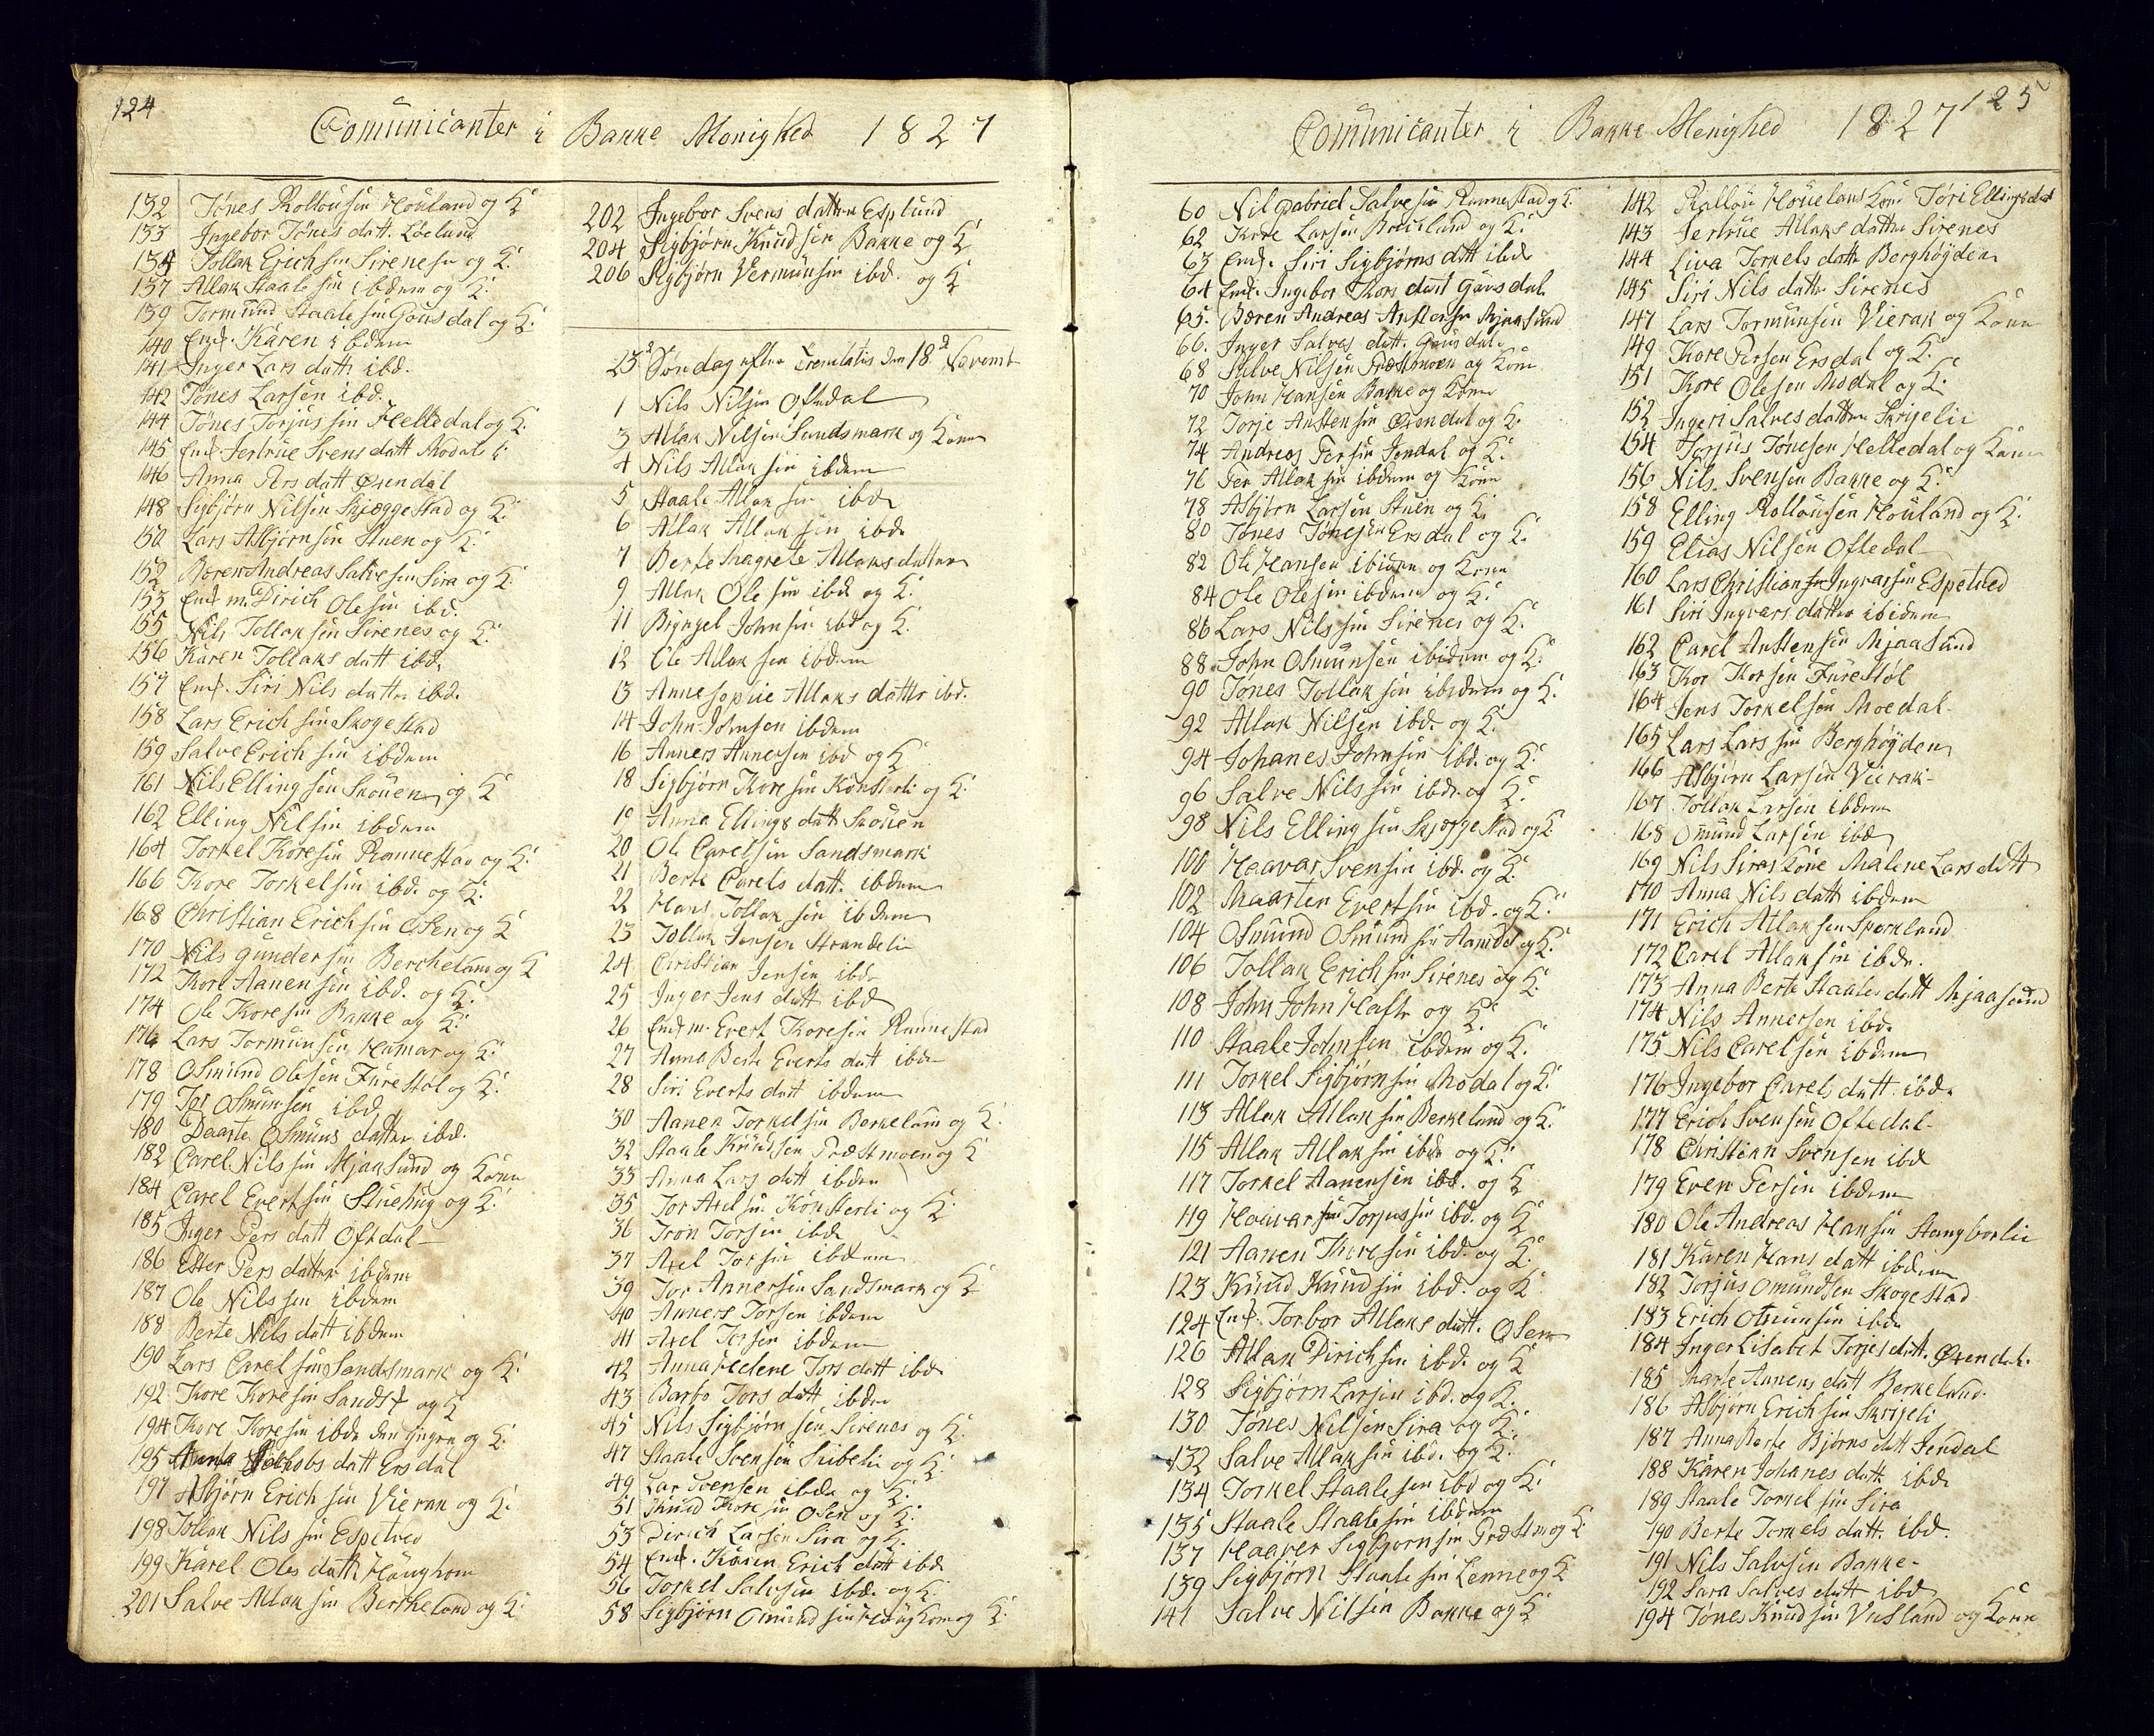 124
Comunicanter i Bakke Menighed 1827
132 Tönes Rollousen Houland og K:
133 Ingebor Tönes datt. Löelund
134 Tollak Erichsen Sirenes og K:
137 Atlak Staalesen ibdem og K:
139 Tormund Staalesen Gousdal og K:
140 Enk. Karen ibdem
141 Inger Lars datter ibd.
142 Tönes Larsen ibd.
144 Tönes Torjussen Helledal og K:
145 Enk Jertrue Svens datt Modal
146 Anna Pers datt Øxendal
148 Sigbjörn Nilsen Skjæggestad og K:
150 Lars Asbjörnsen Stuen og K:
152 Bören Andreas Salvesen Sira og K:
153 Enk m. Dirich Olesen ibd.
155 Nils Tollaksen Sirenes og K:
156 Karen Tollaks datt ibd.
157 Enk. Siri Nils datter ibd.
158 Lars Erichsen Skogestad
159 Salve Erichsen ibdem
161 Nils Ellingsen Skouen og K
162 Elling Nilsen ibdem
164 Torkel Koresen Ramnestad og K:
166 Kore Torkelsen ibd. og K:
168 Christian Erichsen Osen og K
170 Nils Gundersen Bercheland og K
172 Kore Aanensen ibd. og K:
174 Ole Koresen Bakke og K:
176 Lars Tormunsen Hamar og K:
178 Osmund Olesen Furestöl og K:
179 Tor Osmunsen ibd
180 Daarte Osmuns datter ibd.
182 Carel Nilssen Mjaasund og Kone
184 Carel Evertsen Stuehug og K:
185 Inger Pers datt Oftdal
186 Ester Pers datter ibdem
187 Ole Nilssen ibdem
188 Berte Nils datt ibdem
190 Lars Carelsen Sandsmark og K:
192 Kore Koresen Sandst og K
194 Kore Koresen ibd den yngre og K:
195 Anna Jakobs datt Ersdal
197 Asbjörn Erichsen Vierak og K:
198 Tollak Nilssen Espetved
199 Karel Oles datter Haughom
201 Salve Atlaksen Bercheland og K:
202 Ingebor Svens datter Esplund
204 Sigbjörn Knudsen Bakke og K
206 Sigbjörn Vermunsen ibd. og K
23de Söndag efter Trenitatis den 18de Novembr
1 Nils Nilsen Oftedal
3 Atlak Nilsen Sandsmark og Kone
4 Nils Atlaksen ibdem
5 Staale Atlaksen ibd
6 Atlak Atlaksen ibd.
7 Berte Magrete Atlaks datter
9 Atlak Olesen ibd og K:
11 Bryngel Johnsen ibd og K:
12 Ole Atlaksen ibdem
13 Anne Sophie Atlaks datter ibd.
14 John Johnsen ibdem
16 Anners Annersen ibd og K
18 Sigbjörn Koresen Konsterli og K:
19 Anna Ellings datt Skouen
20 Ole Carelsen Sandsmark
21 Berte Carels datt. ibdem
22 Hans Tollaksen ibdem
23 Tollak Jensen Strandelie
24 Christian Jensen ibd
25 Inger Jens datt ibd
26 Enkm. Evert Koresen Ramnestad
27 Anna Berte Everts datt ibd
28 Siri Everts datt ibdem
30 Aanen Torkelsen Berkelam og K:
32 Staale Knudsen Præstmoen og K
33 Anna Lars datt ibdem
35 Tor Axelsen Konsterli og K
36 Tron Torsen ibd
37 Axel Torsen ibdem
39 Tor Annersen Sandsmark og K
40 Anners Torsen ibdem
41 Axel Torsen ibdem
42 Anna Helene Tors datt ibd
43 Barbo Tors datt ibdem
45 Nils Sigbjörnsen Sirenes og K:
47 Staale Svensen Subeli og K:
49 Lar Svensen ibdem og K:
51 Knud Koresen Osen og K:
53 Derich Larsen Sira og K:
54 Enk. Karen Erich datt ibd
56 Torkel Salvsen ibd. og K:
58 Sigbjörn Omundsen Haughom og K:
125
Comunicanter i Bakke Menighed 1827
60 Nil Gabriel Salvesen Ramnestad og K:
62 Kore Larsen Birkeland og K:
63 Enk. Siri Sigbjörns datt ibd
64 Enk. Ingebor Kors datt Gausdal
65. Bören Andreas Anstensen Mjaasund
66. Inger Salves datt. Gausdal
68 Salve Nilsen Præstmoen og Kone
70 John Hansen Bakke og Kone
72 Torje Anstensen Øxendal og K:
74 Andreas Persen Jendal og K:
76 Per Atlaksen ibdem og Kone
78 Asbjörn Larsen Stuen og K:
80 Tönes Tönesen Ersdal og K:
82 Ole Hansen ibidem og Kone
84 Ole Olesen ibdem og K:
86 Lars Nilssen Sirenes og K:
88 John Osmunsen ibidem og K:
90 Tönes Tollaksen ibidem og K:
92 Atlak Nilsen ibd. og K:
94 Johanes Johnsen ibd. og K:
96 Salve Nilssen ibd. og K:
98 Nils Ellingsen Skjæggestad og K:
100 Haavar Svensen ibd. og K:
102 Maarten Evertsen ibd. og K:
104 Osmund Osmundsen Aamdal og K:
106 Tollak Erichsen Sirenes og K:
108 John John Hafte og K:
110 Staale Johnsen ibdem og K:
111 Torkel Sigbjörnsen Modal og K:
113 Atlak Atlaksen Berkeland og K:
115 Atlak Atlaksen ibd og K:
117 Torkel Aanensen ibd. og K
119 Haavar Torjussen ibd. og K
121 Aanen Koresen ibd. og K:
123 Knud Knudsen ibd. og K
124 Enk. Torbor Atlaks datt. Osen
126 Atlak Dirichsen ibd. og K
128 Sigbjörn Larsen ibd. og K.
130 Tönes Nilsen Sira og K:
132 Salve Atlaksen ibd. og K:
134 Torkel Staalesen ibd og K:
135 Staale Staalesen ibdem
137 Haaver Sigbjornsen Præstm og K
139 Sigbjörn Staalesen Lenne og K
141 Salve Nilsen Bakke og K
142 Rallou Houelans Kone Töri Ellingsdat
143 Jertrue Atlaks datter Sirenes
144 Liva Torkels datt Berghöyden
145 Siri Nils datter Sirenes
147 Lars Tormunsen Vierak og Kone
149 Kore Persen Ersdal og K:
151 Kore Olesen Modal og K:
152 Ingeri Salves datter Skrijelie
154 Torjus Tönesen Helledal og Kone
156 Nils Svensen Bakke og K:
158 Elling Rollousen Houland og K:
159 Elias Nilsen Oftedal
160 Lars Christian Ingvarsen Espetved
161 Siri Ingvars datter ibidem
162 Carel Anstensen Mjaasund
163 Kor Korsen Furestöl
164 Jens Torkelsen Moedal
165 Lars Larssen Berghöyden
166 Asbjörn Larsen Vierak
167 Tollak Larsen ibdem
168 Omund Larsen ibd
169 Nils Siras Kone Malene Lars datt
170 Anna Nils datt ibdem
171 Erich Atlaksen Sporkland
172 Carel Atlaksen ibd.
173 Anna Berte Staales datt Mjaasund
174 Nils Annersen ibd.
175 Nils Carelsen ibdem
176 Ingebor Carels datt. ibd.
177 Erich Svensen Oftedal
178 Christian Svensen ibd
179 Even Persen ibdem
180 Ole Andreas Hansen Stangborlie
181 Karen Hans datt ibdem
182 Torjus Omundsen Skogestad
183 Erich Osmunsen ibd
184 Inger Lisabet Torjes datt. Øxendal
185 Marte Aanens datt Berkeland
186 Asbjörn Erichsen Skrijeli
187 Anna Berte Björns datt Jendal
188 Karen Johanes datt. ibd
189 Staale Torkelsen Sira
190 Berte Torkels datt. ibd.
191 Nils Salvsen Bakke
192 Sara Salves datt ibd
194 Tönes Knudsen Vatland og Kone